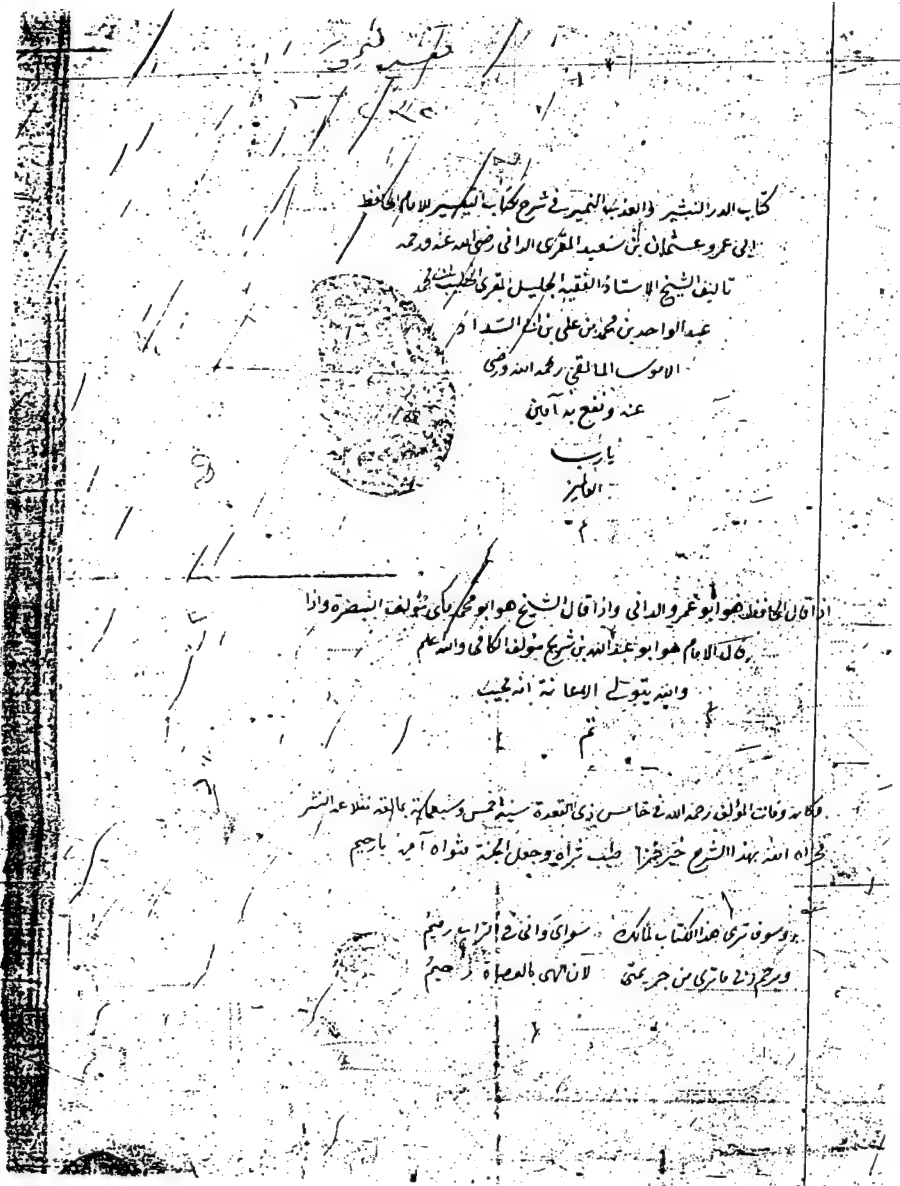 كتاب الدر النثير والعذب النمير في شرح كتاب التيسير للامام الحافظ
ابي عمرو عثمان بن سعيد المقرى الداني رضي الله عنه ورحمه
تاليف الشيخ الاستاذ الفقيه الجليل المقرى الخطيب ابي محمد
عبد الواحد بن محمد بن علي بن ابي السداد
الاموي المالقي رحمه الله ورضي
عنه ونفع به آمين
يارب
العالمين
م
اذا قال الحافظ هو ابو عمرو الداني واذا قال الشيخ هو ابو محمد مكي مؤلف التبصرة واذا
قال الامام هو ابو عبد الله بن شريح مؤلف الكافي والله اعلم
والله يتولى الاعانة انه مجيب
تم
وكانه وفات المؤلف رحمه الله في خامس ذي القعدة سنة خمس وسبعمائة بمالقه نقلا عن النشر
جزاه الله بهذا الشرح خير جزا طيب ثراه وجعل الجنة مثواه آمين يارحيم
وسوف ترى هذا الكتاب لمالك سواي واني في التراب رميم
ويرحم ربي ماترى من جريمتي لان الهي بالعصاه رحيم